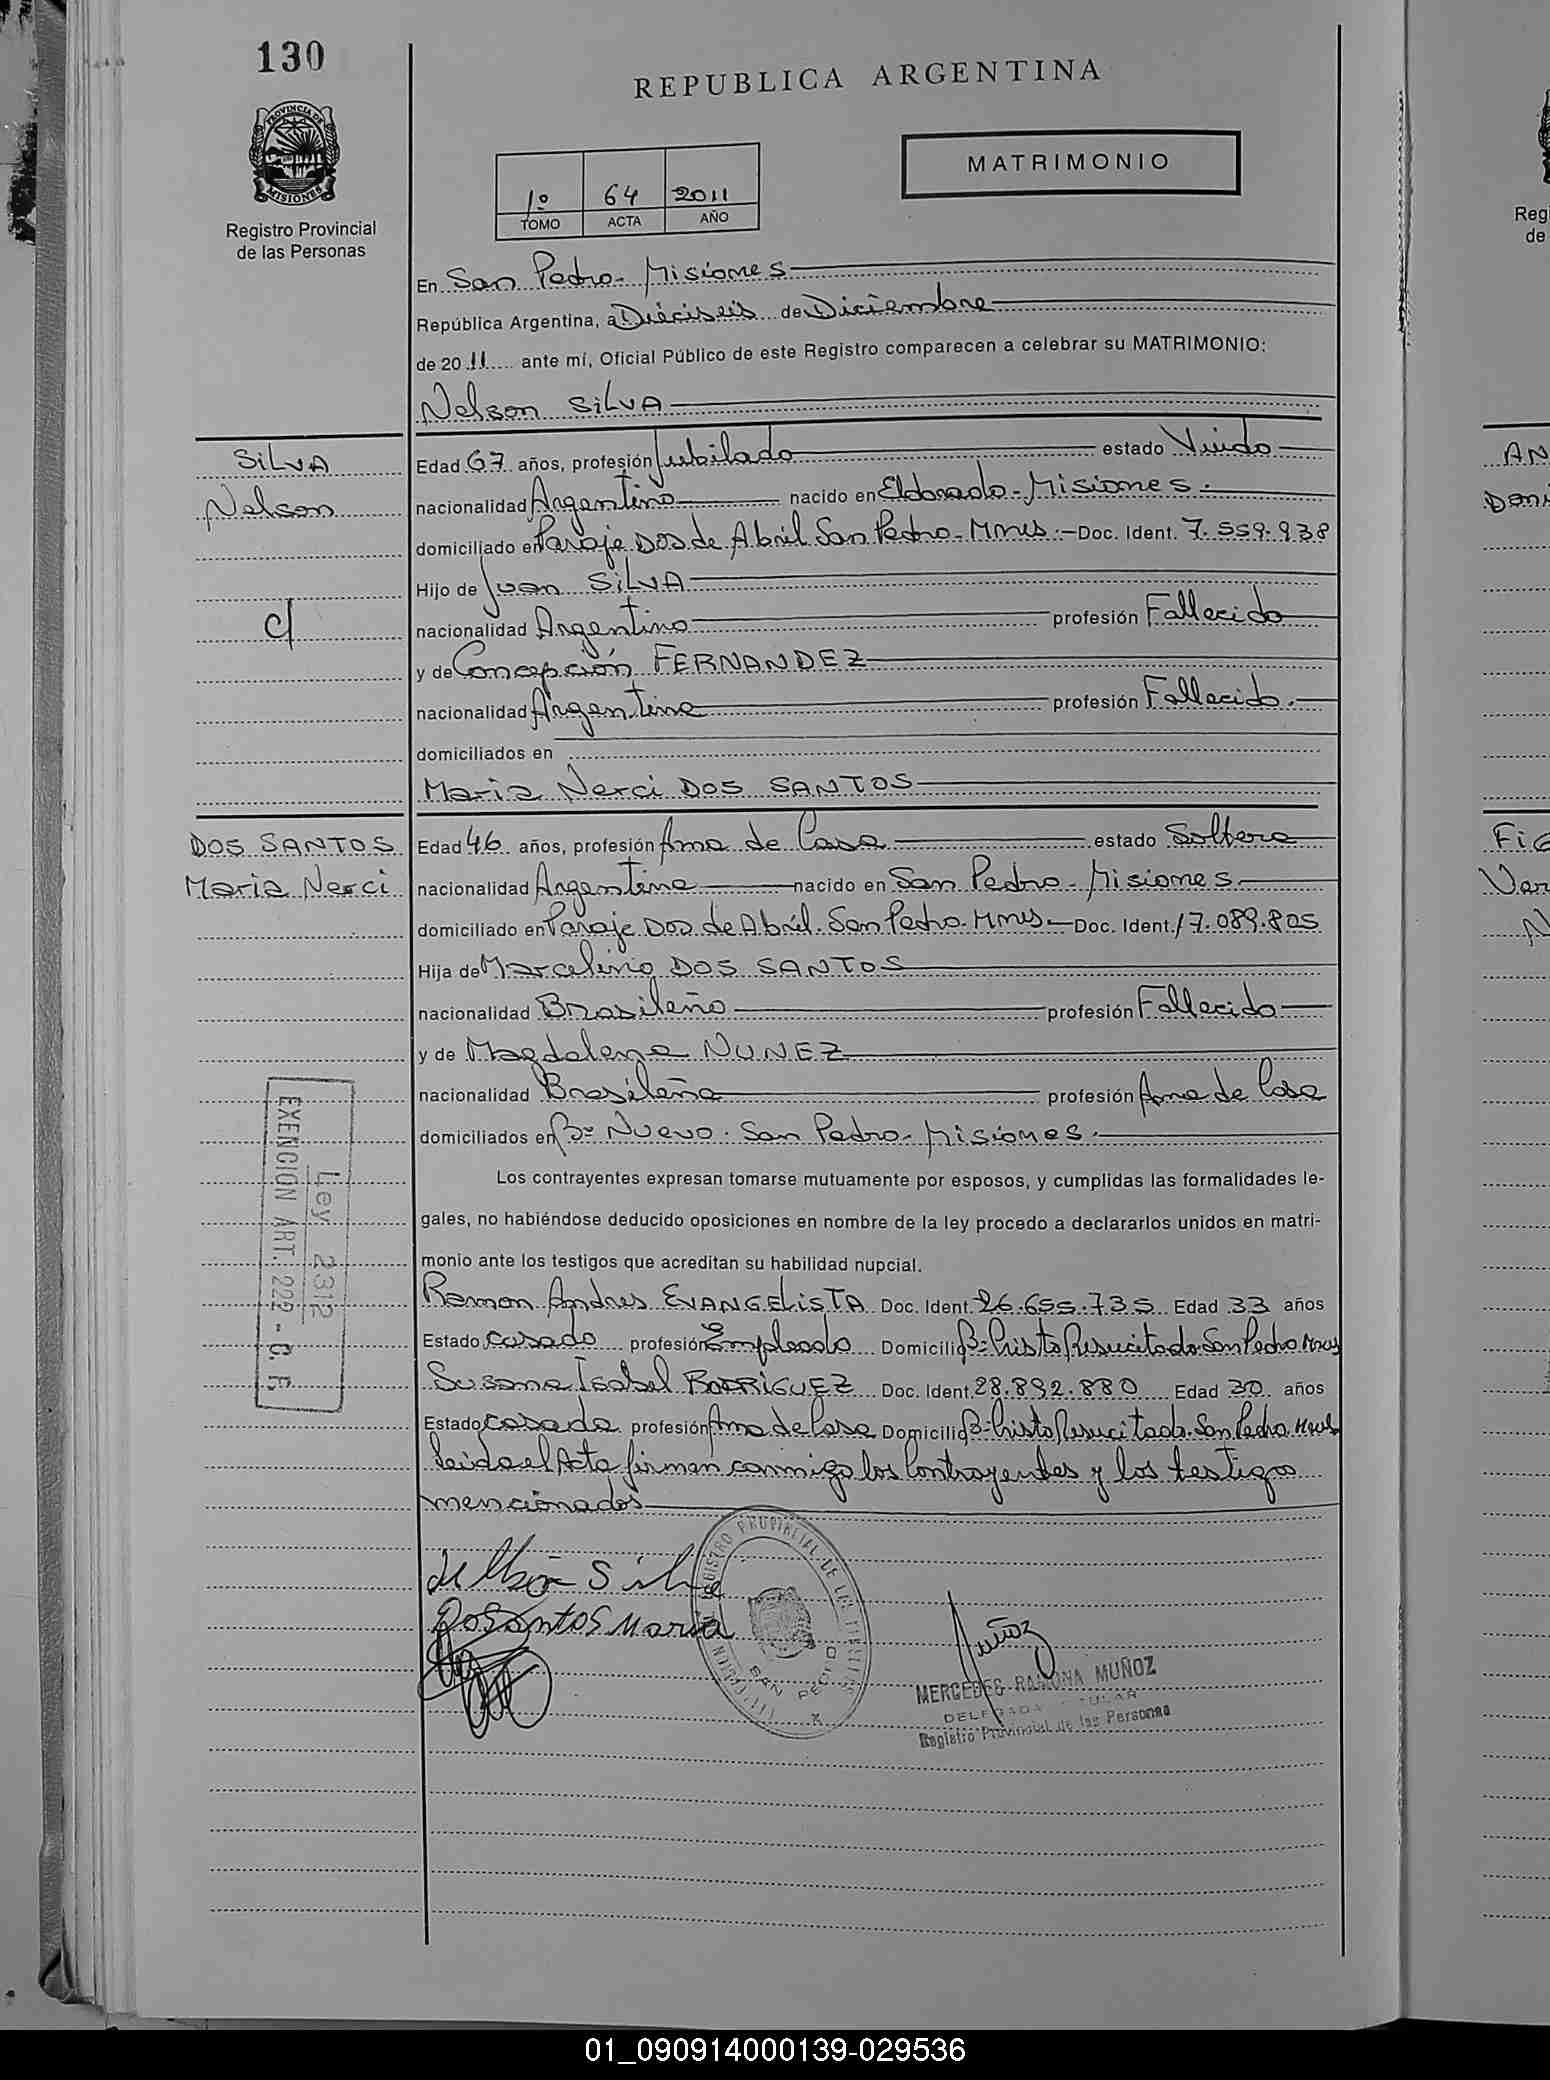 130
REPUBLICA ARGENTINA
PROVINCIA DE
MISIONES
MATRIMONIO
1º 64 2011
TOMO ACTA AÑO
Registro Provincial
de las Personas
En San Pedro - Misiones
República Argentina, a Dieciseis de Diciembre
de 2011 ante mí, Oficial Público de este Registro comparecen a celebrar su MATRIMONIO:
Nelson SILVA
SILVA
Nelson
c/
Edad 67 años, profesión Jubilado estado Viudo
nacionalidad Argentino nacido en Eldorado - Misiones.
domiciliado en Paraje Dos de Abril San Pedro - Mnes - Doc. Ident. 7.559.938
Hijo de Juan SILVA
nacionalidad Argentino profesión Fallecido
y de Concepción FERNANDEZ
nacionalidad Argentina profesión Fallecido.
domiciliados en
Maria Nerci DOS SANTOS
DOS SANTOS
Maria Nerci
Edad 46 años, profesión Ama de Casa estado Soltera
nacionalidad Argentina nacido en San Pedro - Misiones
domiciliado en Paraje Dos de Abril. San Pedro. Mnes - Doc. Ident. 17.089.805
Hija de Marcelino DOS SANTOS
nacionalidad Brasileño profesión Fallecido
y de Magdalena NUNEZ
nacionalidad Brasileña profesión Ama de Casa
domiciliados en Bº Nuevo. San Pedro - Misiones.
Ley 2312
EXENCION ART. 222 - C. F.
Los contrayentes expresan tomarse mutuamente por esposos, y cumplidas las formalidades le-
gales, no habiéndose deducido oposiciones en nombre de la ley procedo a declararlos unidos en matri-
monio ante los testigos que acreditan su habilidad nupcial.
Ramon Andres EVANGELISTA Doc. Ident. 26.655.735 Edad 33 años
Estado casado profesión Empleado Domicilio Bº Cristo Resucitado San Pedro Mnes
Susana Isabel RODRIGUEZ Doc. Ident. 28.892.880 Edad 30 años
Estado casada profesión Ama de Casa Domicilio Bº Cristo Resucitado. San Pedro Mnes
Leida el Acta firman conmigo los Contrayentes y los testigos
mencionados
Silva
Dosantos Maria
REGISTRO PROVINCIAL DE LAS PERSONAS
SAN PEDRO
Muñoz
MERCEDES RAMONA MUÑOZ
DELEGADA TITULAR
Registro Provincial de las Personas
Reg
de
AN
Doni
Fig
Var
N
01_090914000139-029536